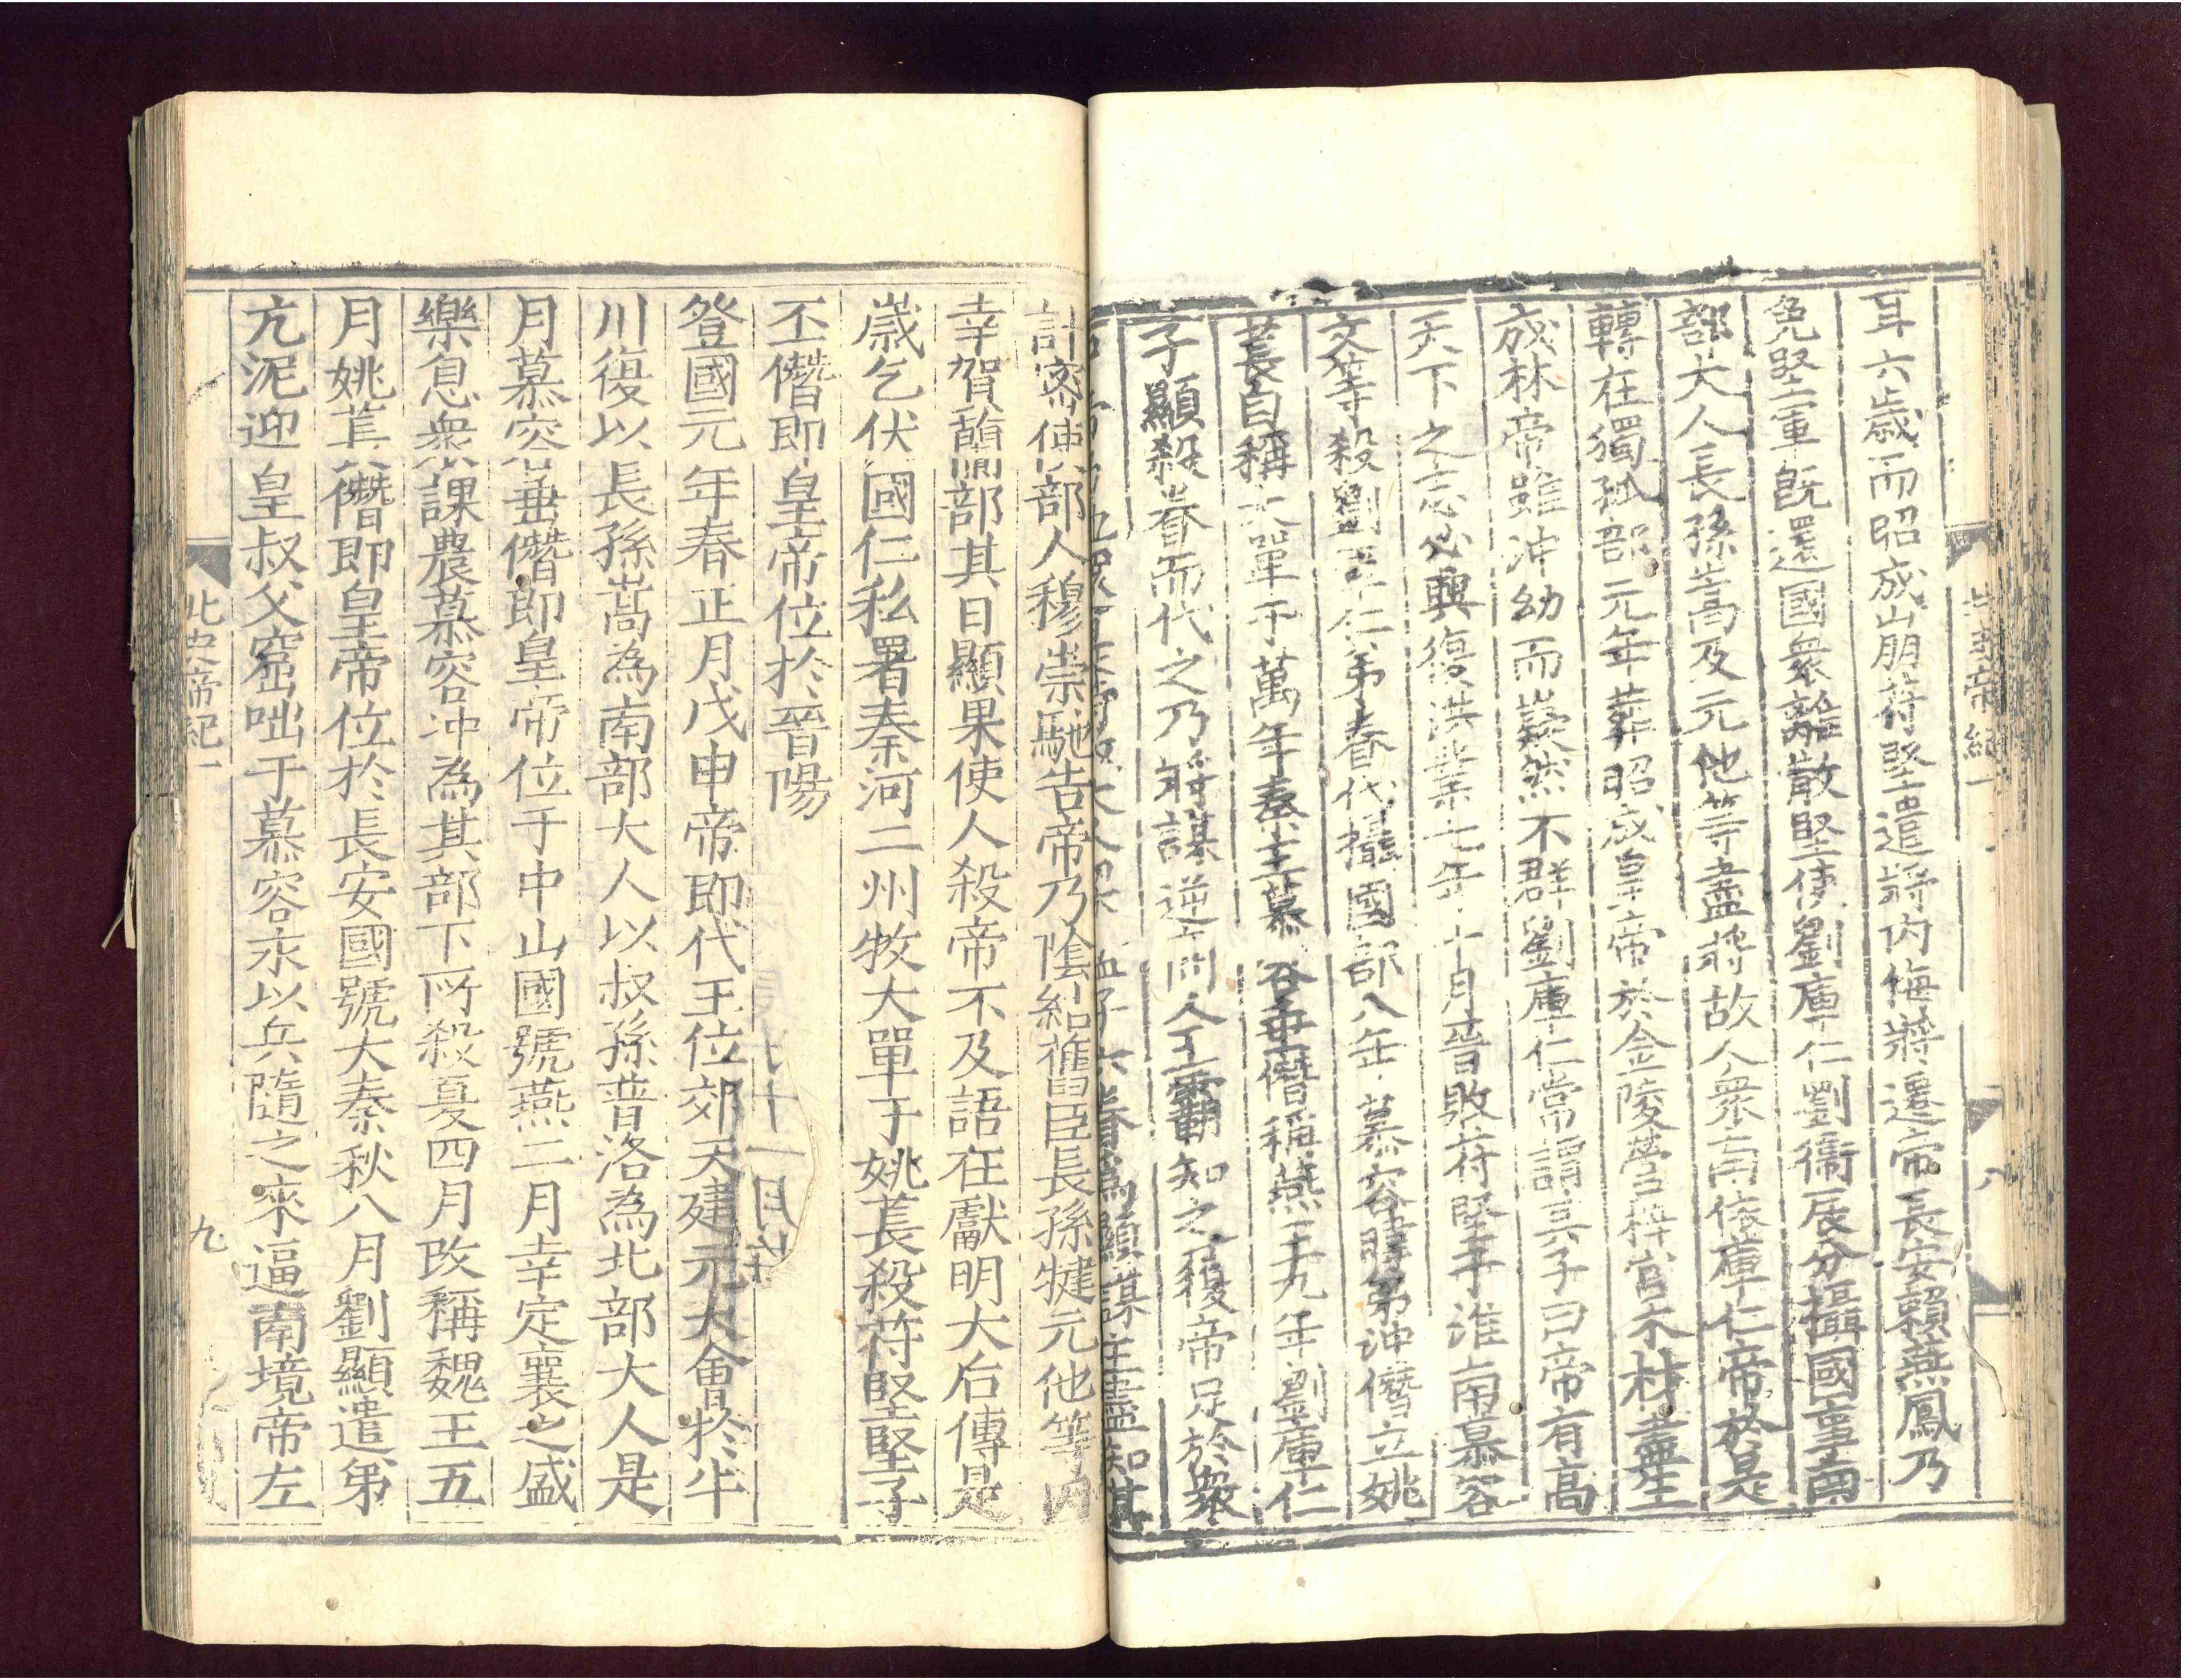 北史帝紀一
八
耳六歲而昭成崩苻堅遣將內侮將遷帝長安賴燕鳳乃
免堅軍旣還國衆離散堅使劉庫仁劉衞辰分攝國事南
部大人長孫嵩及元他等盡將故人衆南依庫仁帝於是
轉在獨孤部元年葬昭成皇帝於金陵營梓宮木柹盡生
成林帝雖沖幼而嶷然不群劉庫仁常謂其子曰帝有高
天下之志必興復洪業七年十月晉敗苻堅于淮南慕容
文等殺劉庫仁弟眷代攝國部八年慕容暐弟沖僭立姚
萇自稱大單于萬年秦王慕容垂僭稱燕王九年劉庫仁
子顯殺眷而代之乃將謀逆商人王霸知之履帝足於衆
六眷爲顯謀主盡知其
計密使部人穆崇馳告帝乃陰結舊臣長孫犍元他等內
幸賀蘭部其日顯果使人殺帝不及語在獻明太后傳是
歲乞伏國仁私署秦河二州牧大單于姚萇殺苻堅堅子
丕僭卽皇帝位於晉陽
登國元年春正月戊申帝卽代王位郊天建元大會於牛
川復以長孫嵩為南部大人以叔孫普洛為北部大人是
月慕容垂僭卽皇帝位于中山國號燕二月幸定襄之盛
樂息衆課農慕容沖為其部下所殺夏四月改稱魏王五
月姚萇僭卽皇帝位於長安國號大秦秋八月劉顯遣弟
亢泥迎皇叔父窟咄于慕容永以兵隨之來逼南境帝左
北史帝紀一
九